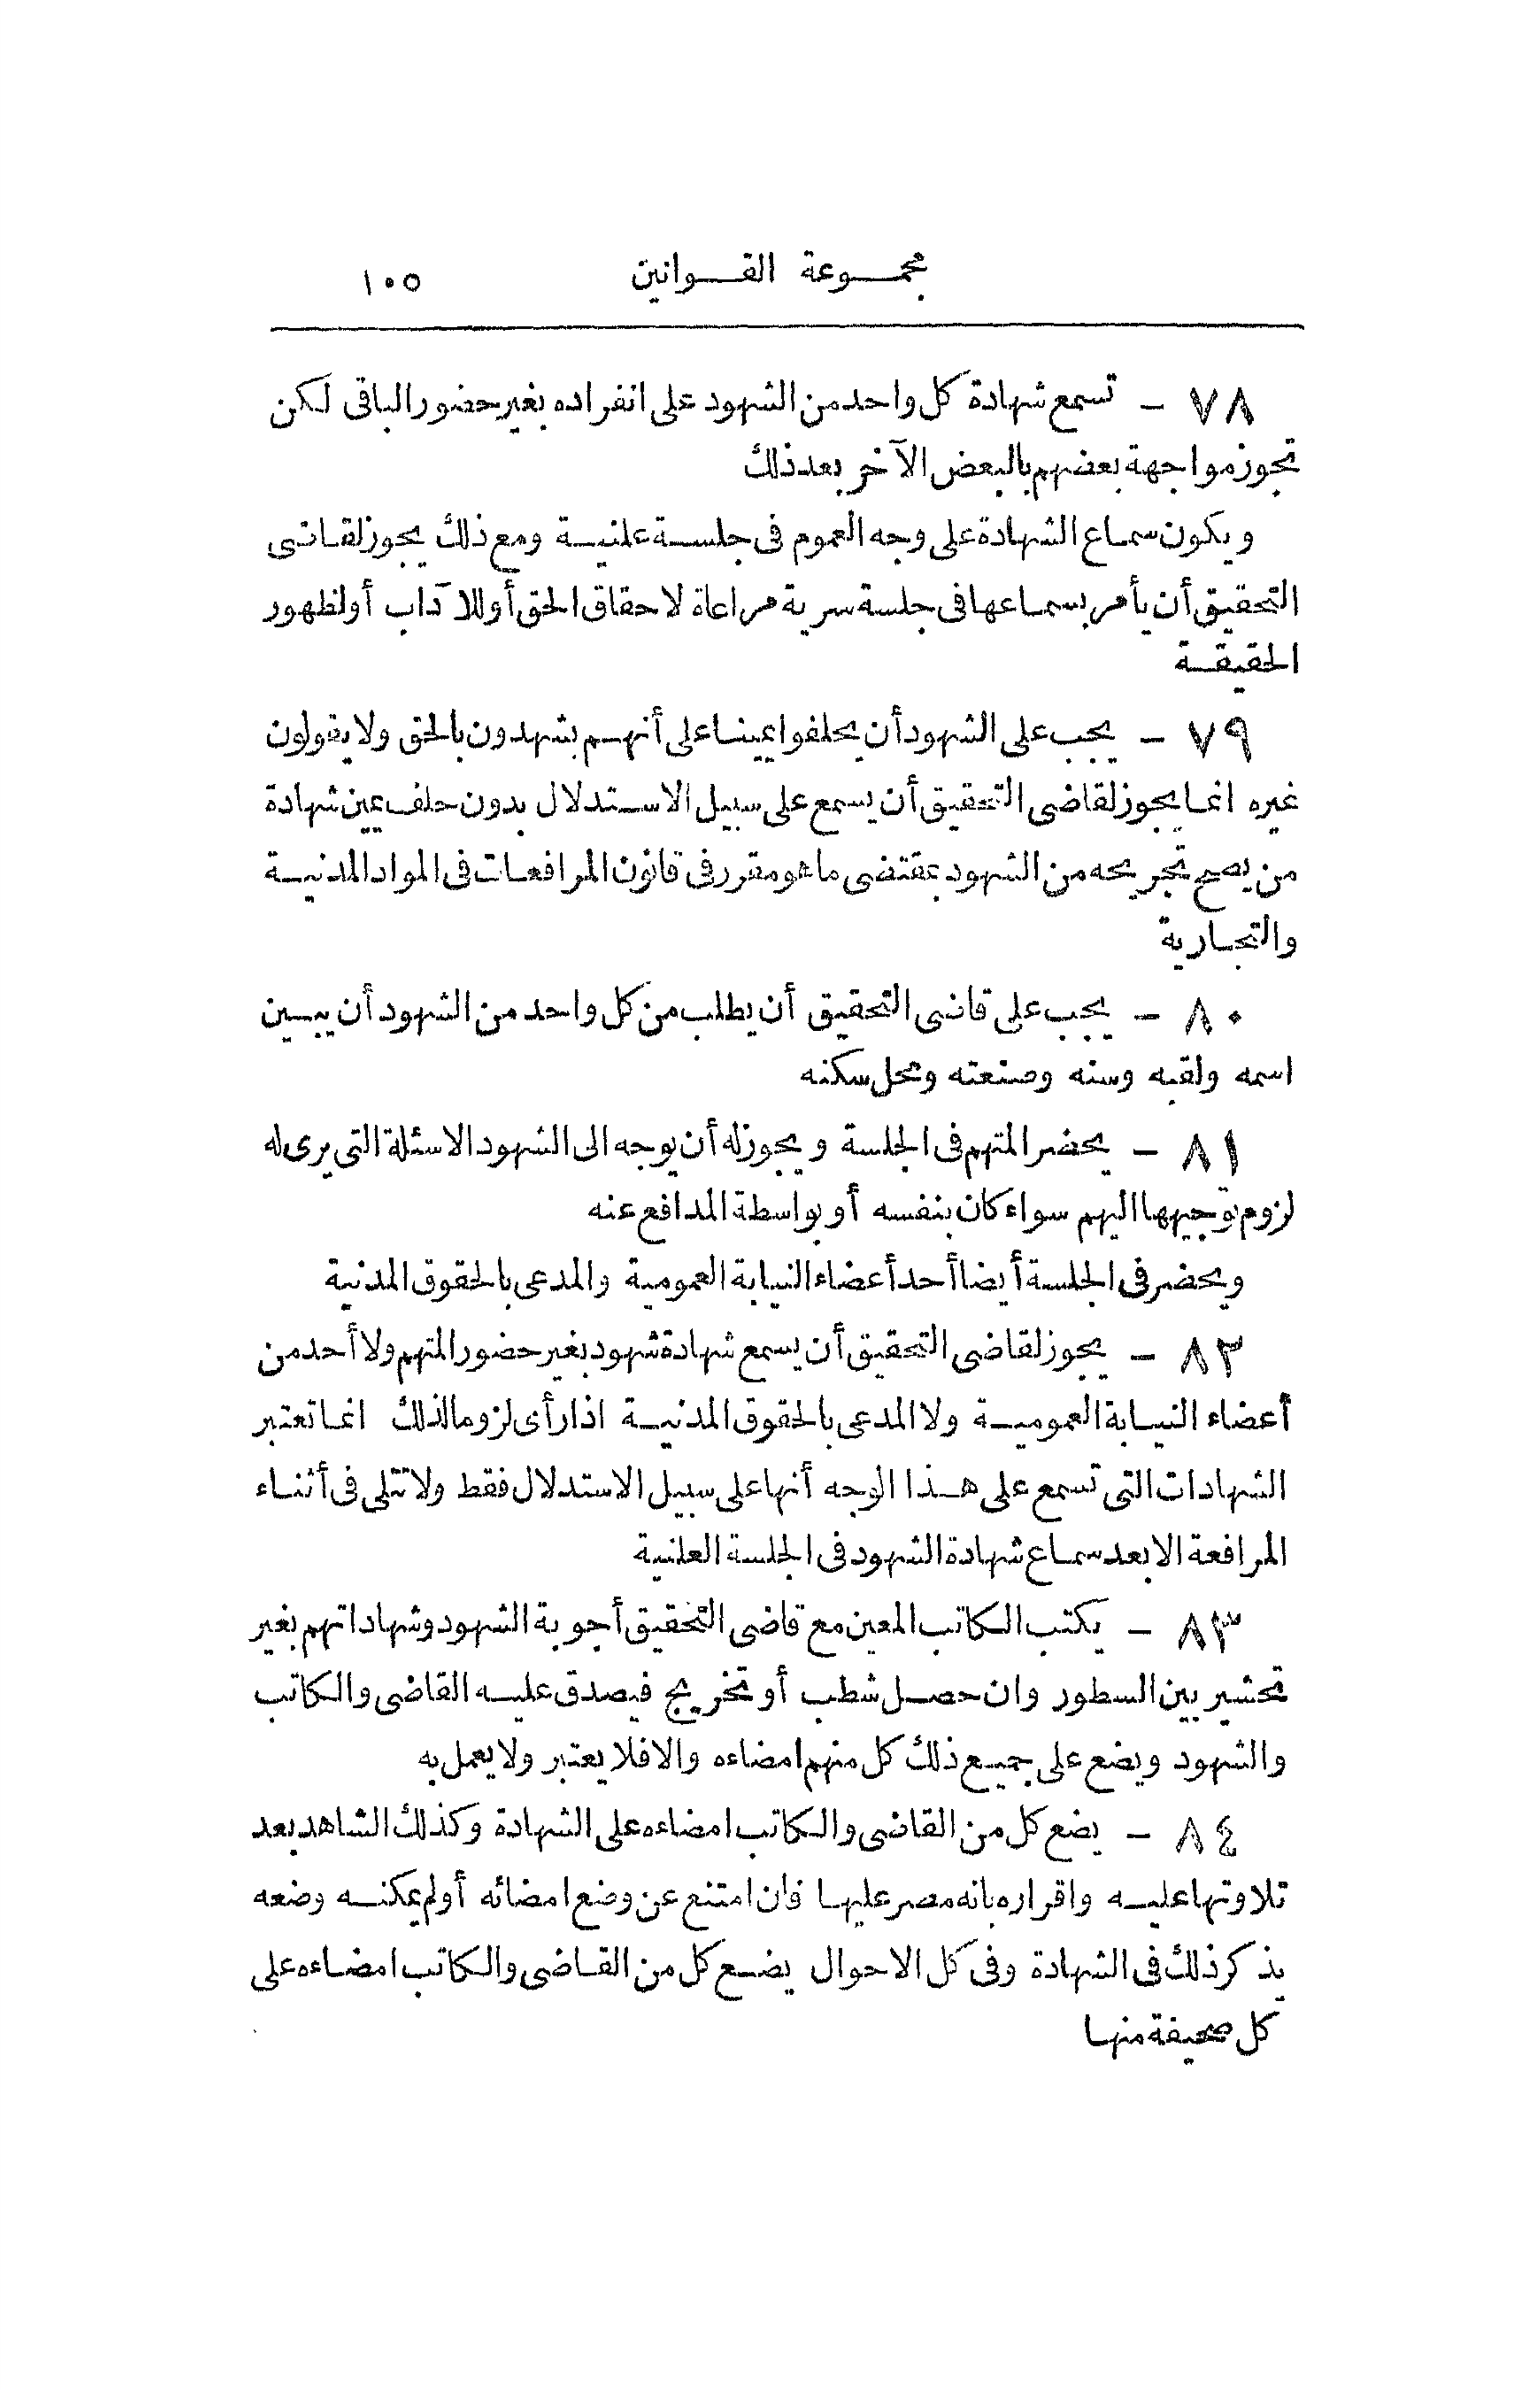 مجموعة القوانين ١٠٥
٧٨ - تسمع شهادة كل واحد من الشهود على انفراده بغير حضور الباقى لكن
تجوز مواجهة بعضهم بالبعض الآخر بعد ذلك
ويكون سماع الشهادة على وجه العموم فى جلسة علنية ومع ذلك يجوز لقاضى
التحقيق أن يأمر بسماعها فى جلسة سرية مراعاة لاحقاق الحق أو للآداب أو لظهور
الحقيقة
٧٩ - يجب على الشهود أن يحلفوا يمينا على أنهم يشهدون بالحق ولا يقولون
غيره انما يجوز لقاضى التحقيق أن يسمع على سبيل الاستدلال بدون حلف يمين شهادة
من يصح تجريحه من الشهود بمقتضى ما هو مقرر فى قانون المرافعات فى المواد المدنية
والتجارية
٨٠ - يجب على قاضى التحقيق أن يطلب من كل واحد من الشهود أن يبين
اسمه ولقبه وسنه وصنعته ومحل سكنه
٨١ - يحضر المتهم فى الجلسة ويجوز له أن يوجه الى الشهود الاسئلة التى يرى له
لزوم توجيهها اليهم سواء كان بنفسه أو بواسطة المدافع عنه
ويحضر فى الجلسة أيضا أحد أعضاء النيابة العمومية والمدعى بالحقوق المدنية
٨٢ - يجوز لقاضى التحقيق أن يسمع شهادة شهود بغير حضور المتهم ولا أحد من
أعضاء النيابة العمومية ولا المدعى بالحقوق المدنية اذا رأى لزوما لذلك انما تعتبر
الشهادات التى تسمع على هذا الوجه أنها على سبيل الاستدلال فقط ولا تتلى فى أثناء
المرافعة الا بعد سماع شهادة الشهود فى الجلسة العلنية
٨٣ - يكتب الكاتب المعين مع قاضى التحقيق أجوبة الشهود وشهاداتهم بغير
تحشير بين السطور وان حصل شطب أو تخريج فيصدق عليه القاضى والكاتب
والشهود ويضع على جميع ذلك كل منهم امضاءه والا فلا يعتبر ولا يعمل به
٨٤ - يضع كل من القاضى والكاتب امضاءه على الشهادة وكذلك الشاهد بعد
تلاوتها عليه واقراره بانه مصر عليها فان امتنع عن وضع امضائه أو لم يمكنه وضعه
يذكر ذلك فى الشهادة وفى كل الاحوال يضع كل من القاضى والكاتب امضاءه على
كل صحيفة منها